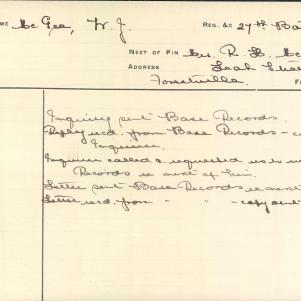 ME Mc Gee, W. J. REG. &C 27th Ba
NEXT OF KIN Mrs. R. H. Mc
ADDRESS Leah Stree
Forestville.
Inquiry sent Base Records.
Reply recd. from Base Records - c
Inquirer.
Inquirer called & requested us to w
Records re next of kin.
Letter sent Base Records re next
Letter recd. from " " - copy sent